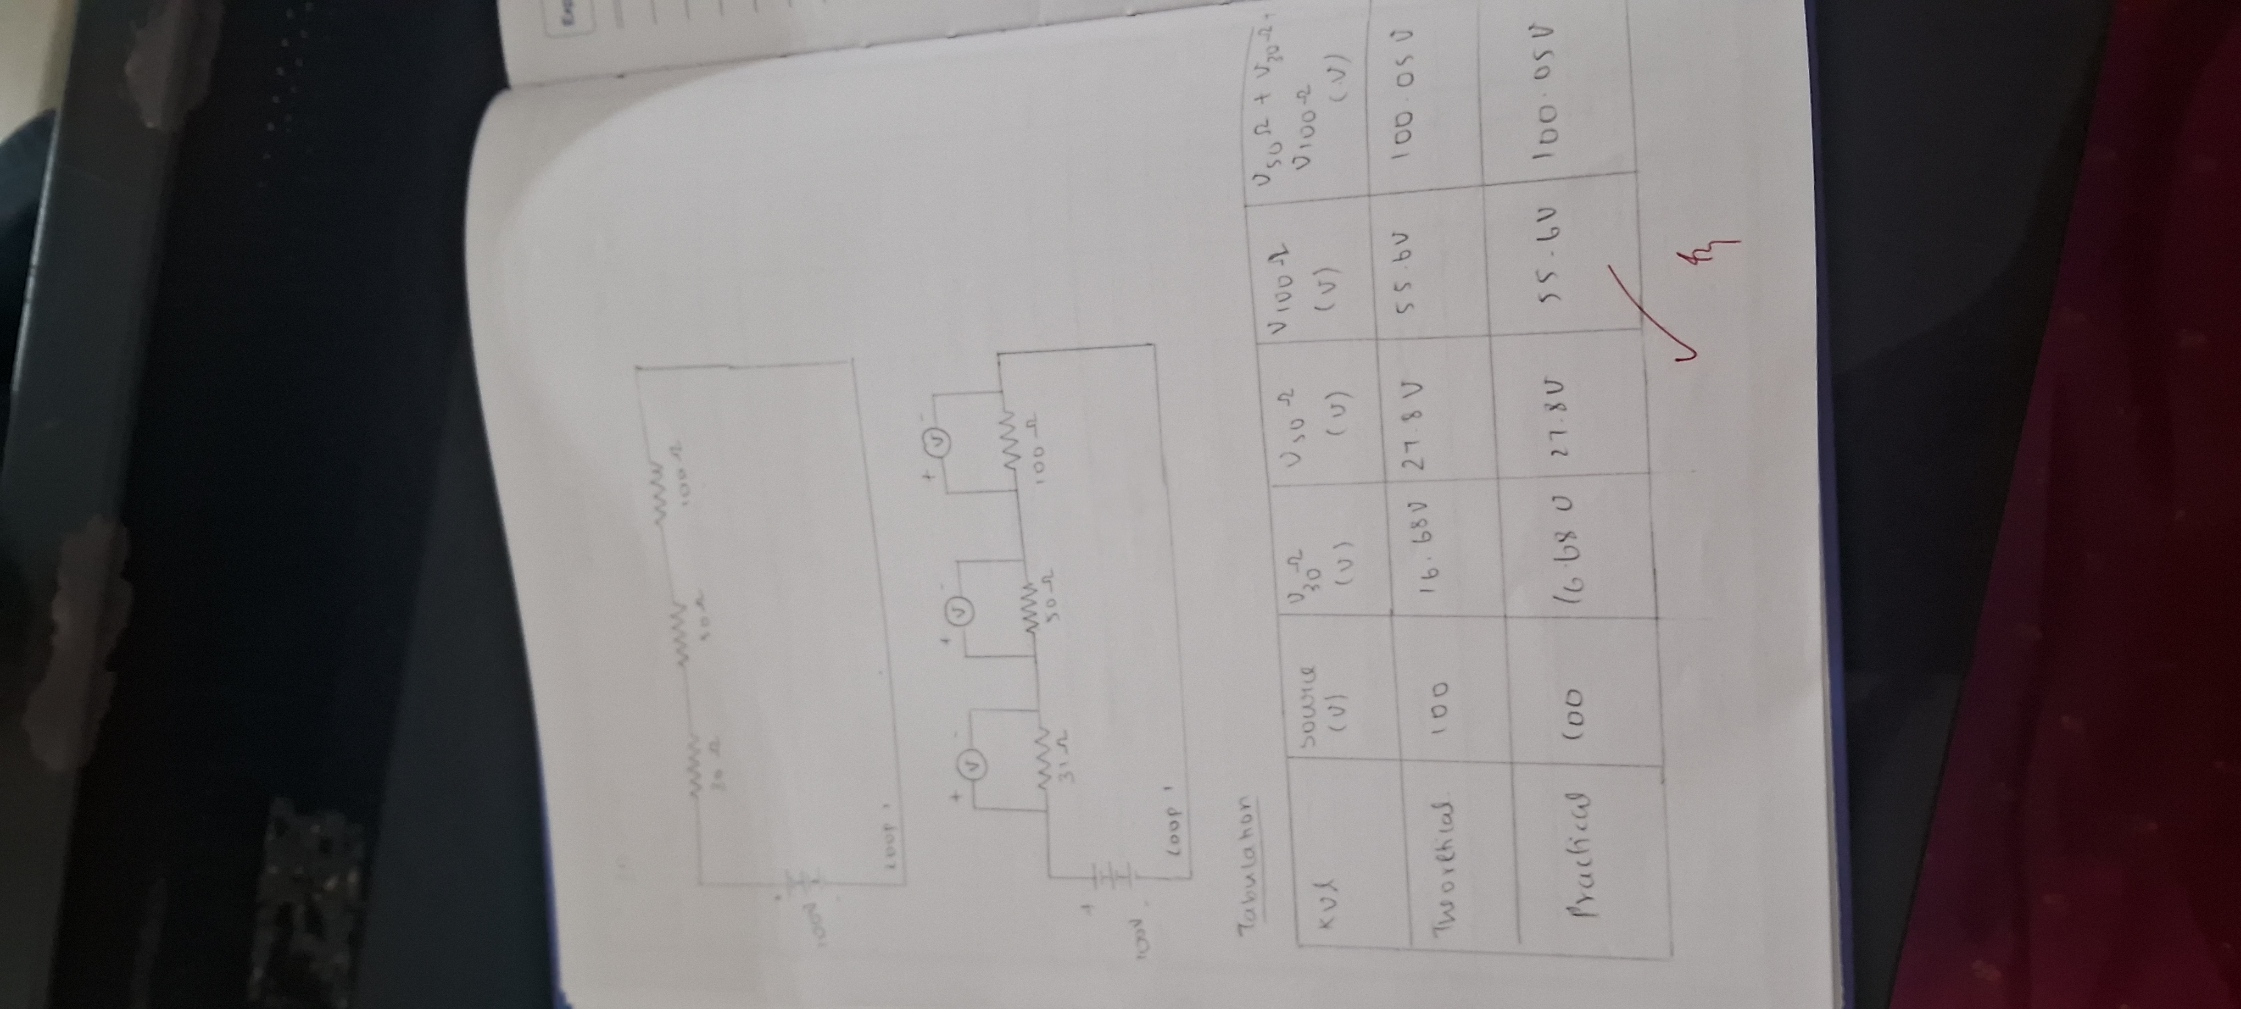 Exp
100Ω
50Ω
30Ω
100V
Loop 1
+ V -
+ V -
+ V -
31Ω
50Ω
100Ω
+
100V
Loop 1
Tabulation
KVL Source (V) V30Ω (V) V50Ω (V) V100Ω (V) V50Ω + V30Ω + V100Ω (V)
Theoretical 100 16.68V 27.8V 55.6V 100.05V
Practical 100 16.68V 27.8V 55.6V 100.05V